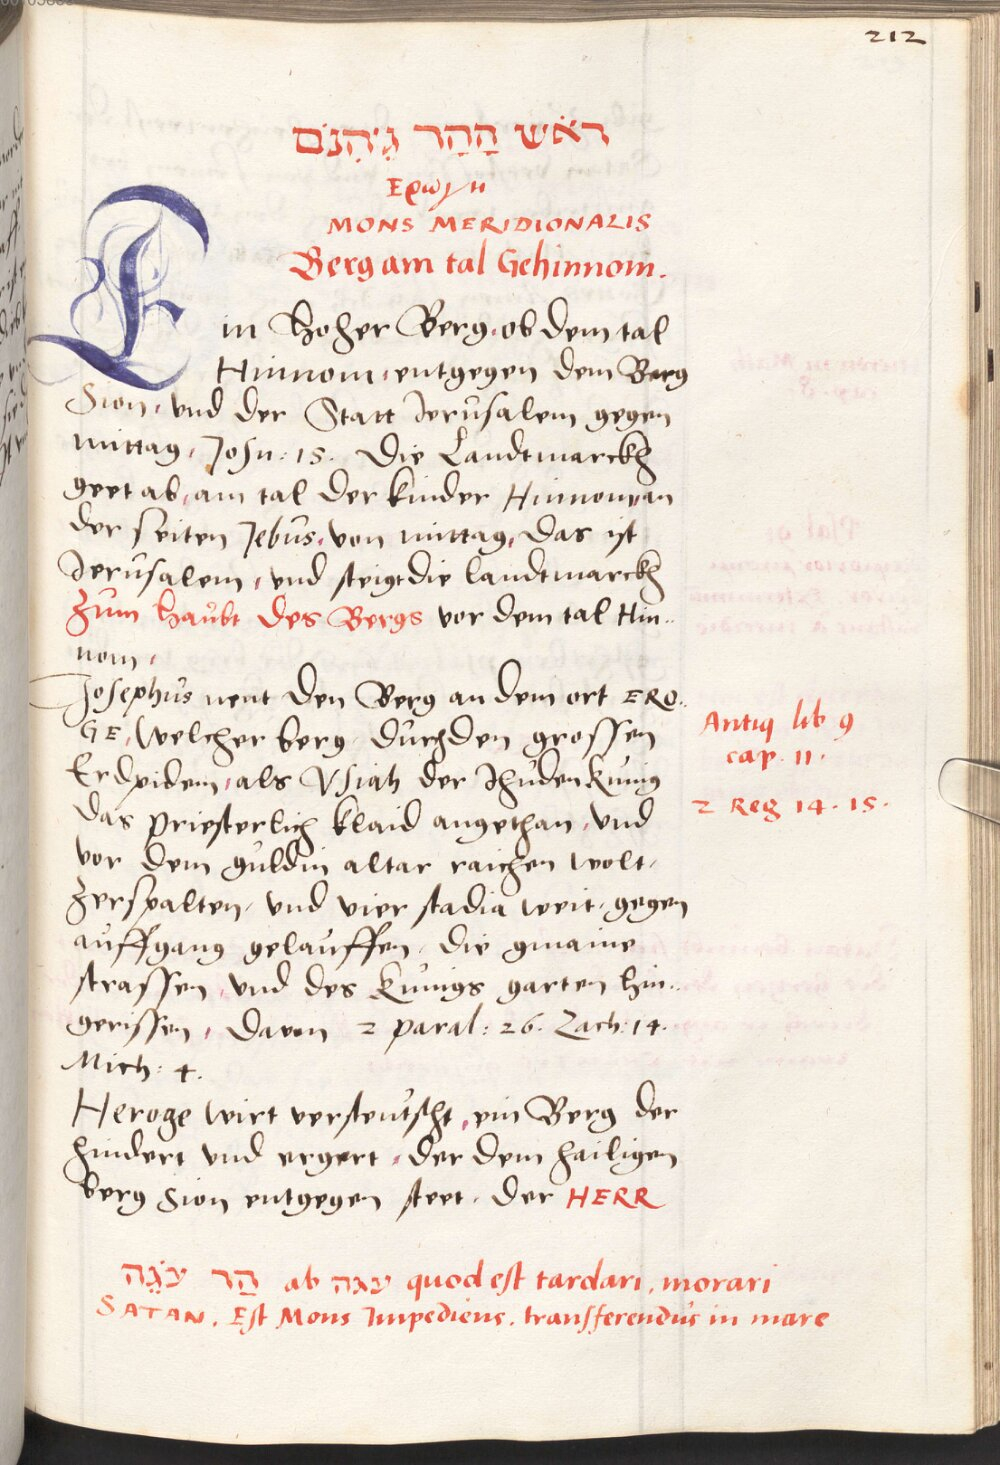 212
רֹאשׁ הָהָר גְיְהִנֹּם
Ερωγη
MONS MERIDIONALIS
Berg am tal Gehinnom.
Ein hoher Berg, ob dem tal
Hinnom, entgegen dem Berg
Sion, und der Statt Jerusalem gegen
mittag, Josu: 15. Die Landtmarckh
geet ab, am tal der kinder Hinnom, an
der seiten Jebus, von mittag, das ist
Jerusalem, und steigt die landtmarckh
zum haubt des Bergs vor dem tal Hin-
nom,
Josephus nent den Berg an dem ort ERO-
GE, welcher berg durch den grossen
Erdpidem, als Usiah der Jhuden Kunig
das priesterlich klaid angethan, und
vor dem guldin altar raichen wolt,
zerspalten, und vier stadia weit, gegen
auffgang gelauffen, die gmaine
strassen, und des Kunigs garten hin-
gerissen, davon 2 paral: 26. Zach: 14.
Mich: 4.
Antiq lib 9
cap. 11.
2 Reg 14. 15.
Heroge wirt versteutscht, ein Berg der
hindert und ergert, der dem hailigen
berg Sion entgegen steet. der HERR
הַר עֹגֶה ab עגה quod est tardari, morari
SATAN. Est Mons Impediens. transferendus in mare